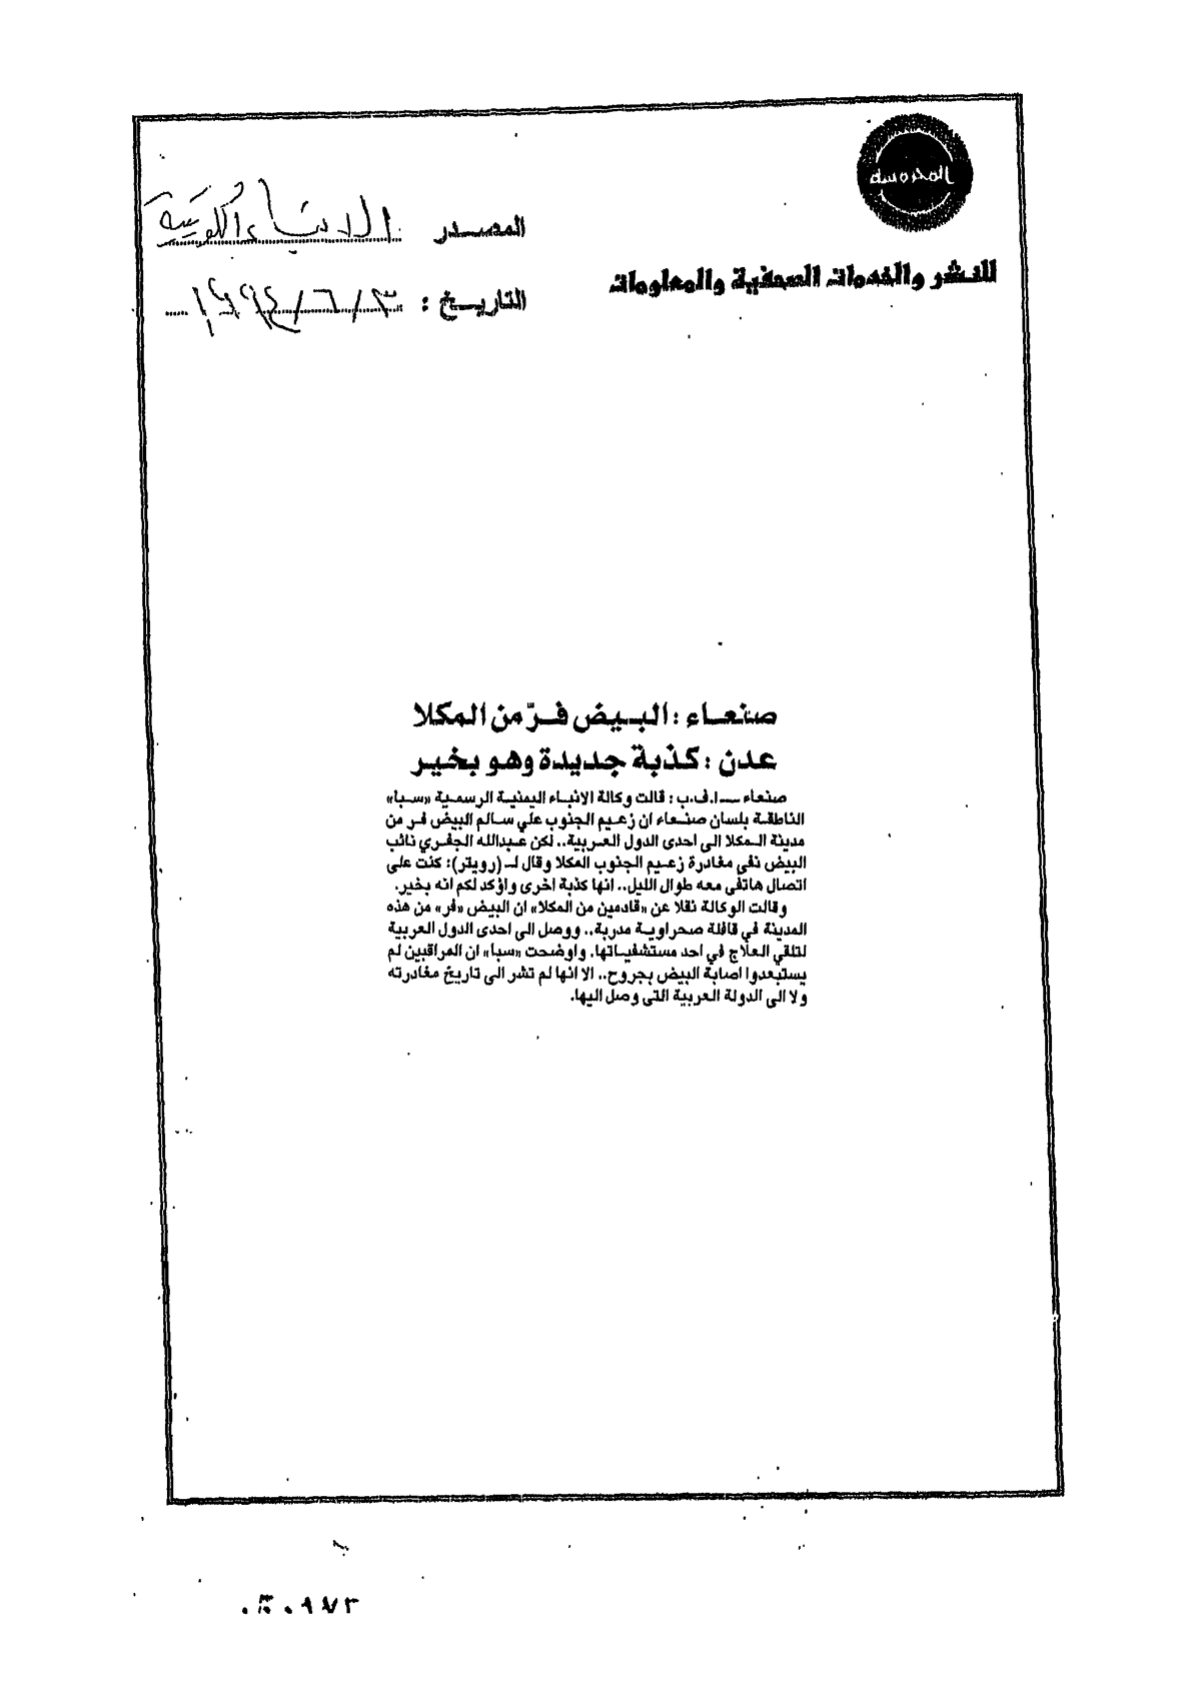 المحروسة
للنشر والخدمات الصحفية والمعلومات
المصدر الانباء الكويتية
التاريخ : ٣ / ٦ / ١٩٩٤
صنعاء : البيض فرّ من المكلا
عدن : كذبة جديدة وهو بخير
صنعاء ــ ا.ف.ب : قالت وكالة الانباء اليمنية الرسمية «سبا»
الناطقة بلسان صنعاء ان زعيم الجنوب علي سالم البيض فر من
مدينة المكلا الى احدى الدول العربية.. لكن عبدالله الجفري نائب
البيض نفى مغادرة زعيم الجنوب المكلا وقال لـ (رويتر): كنت على
اتصال هاتفي معه طوال الليل.. انها كذبة اخرى واؤكد لكم انه بخير.
وقالت الوكالة نقلا عن «قادمين من المكلا» ان البيض «فر» من هذه
المدينة في قافلة صحراوية مدربة.. ووصل الى احدى الدول العربية
لتلقي العلاج في احد مستشفياتها. واوضحت «سبا» ان المراقبين لم
يستبعدوا اصابة البيض بجروح.. الا انها لم تشر الى تاريخ مغادرته
ولا الى الدولة العربية التي وصل اليها.